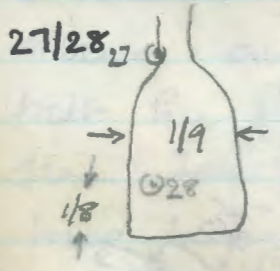 27/28
27
1/9
28
1/8